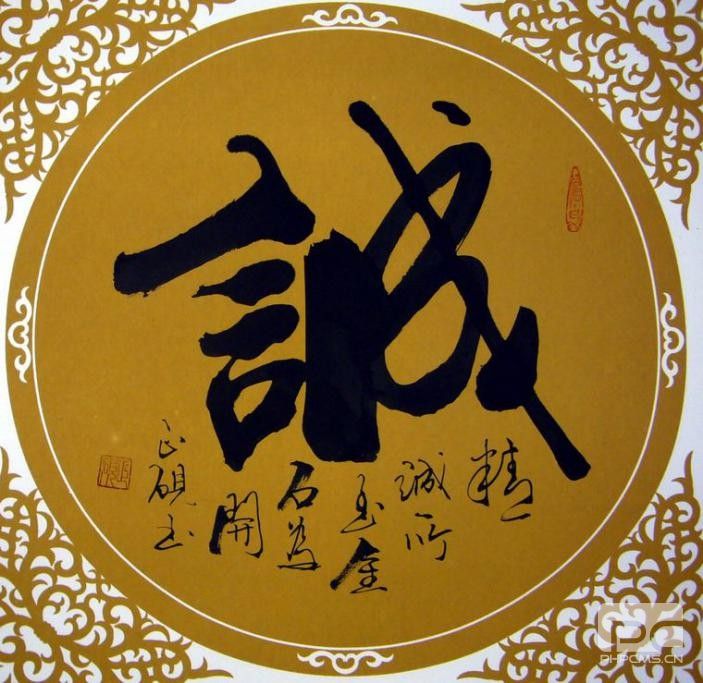 誠
精
誠所
至金
石為
開
PHPCMS.CN